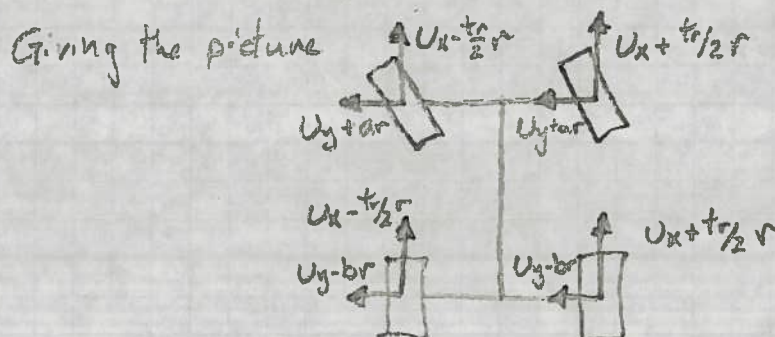 Giving the picture
Ux - tr/2 r
Ux + tr/2 r
Uy+ar
Uy+ar
Ux - tr/2 r
Ux + tr/2 r
Uy-br
Uy-br